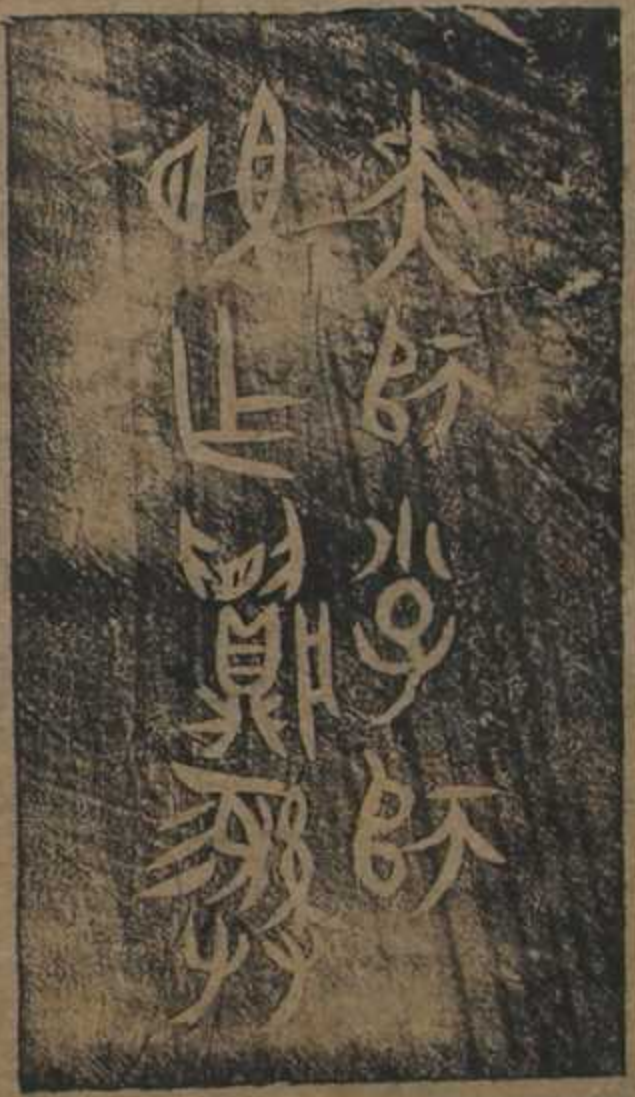 大師小子師
望乍䵼彝